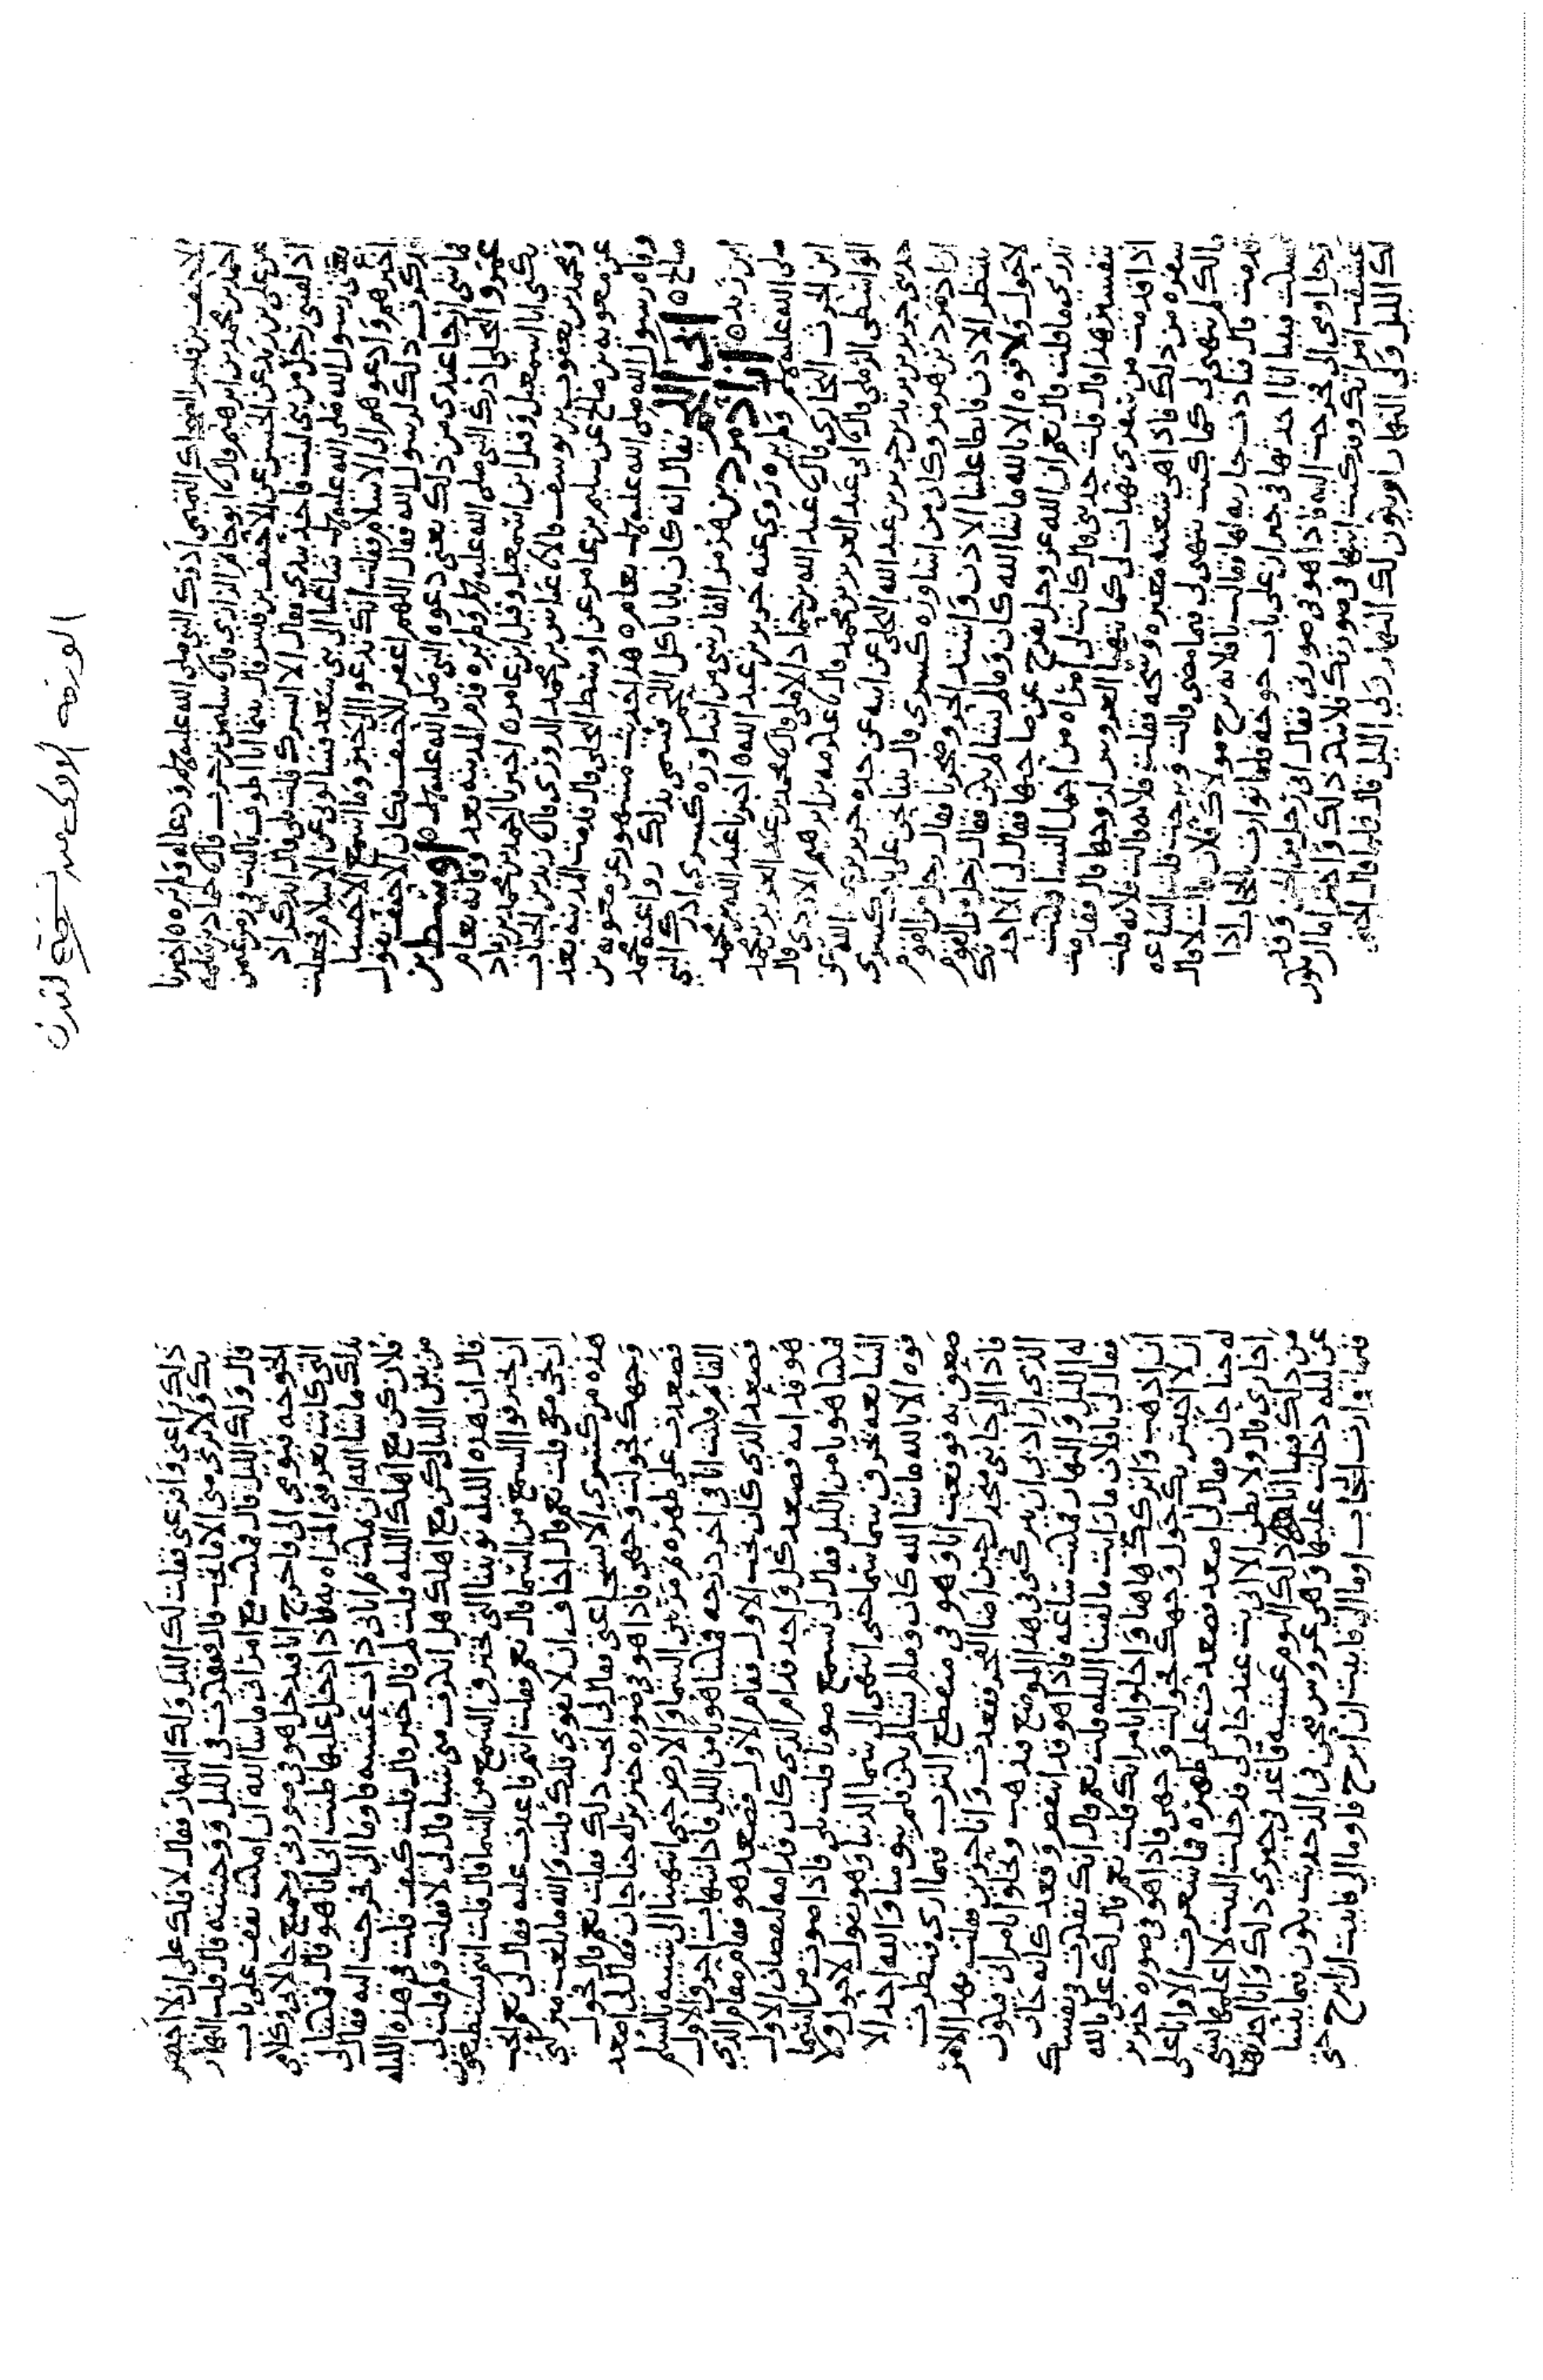 الورقة الاولى من نسخة لندن
الاحنف بن قيس الضحاك التميمي ادرك النبي صلى الله عليه وسلم ودعا له ولم يره اخبرنا
احمد بن محمد بن ابرهيم قال ابو حاتم الرازي قال سليمن بن حرب قال حماد بن سلمه
عن علي بن زيد عن الحسن عن الاحنف بن قيس قال بينما انا اطوف بالبيت في زمن عثمن
اذ لقيني رجل من بني ليث فاخذ بيدي فقال الا ابشرك قلت بلى قال اتذكر اذ
بعثني رسول الله صلى الله عليه وسلم ساعيا الى بني سعد فسالوني عن الاسلام فجعلت
اخبرهم وادعوهم الى الاسلام فقلت انك تدعوا الى خير وما اسمع الا حسنا
فذكرت ذلك لرسول الله فقال اللهم اغفر للاحنف فكان الاحنف يقول
فما شي ارجا عندي من ذلك يعني دعوه النبي صلى الله عليه وسلم اوسط بن
عمرو البجلي ادرك النبي صلى الله عليه وسلم ولم يره قدم المدينه بعد وفاته بعام
يكنى ابا اسمعيل وقيل ابن اسمعيل وقيل ابن عامر اخبرنا احمد بن محمد بن زياد
ومحمد بن يعقوب بن يوسف قالا عباس بن محمد الدوري قال زيد بن الحباب
عن معويه بن صالح عن سليم بن عامر عن اوسط البجلي قال قدمت المدينه بعد
وفاه رسول الله صلى الله عليه وسلم بعام هذا حديث مشهور عن معويه بن
صالح ابي اللحم يقال انه كان يابا كل اللحم فسمي بذلك روا عنه محمد
ابن زيد ازاذمرد بن هرمز الفارسي من اساوره كسرى ادرك النبي
صلى الله عليه وسلم ولم يره روى عنه جرير بن عبد الله اخبرنا عبد الله بن محمد
ابن الحرث البخاري قال عبد الله بن حماد الاملي قال محمد بن عبد العزيز بن محمد
الواسطي الرملي قال ابي عبد العزيز بن محمد قال عكرمه بن ابرهيم الازدي قال
حدثني جرير بن يزيد بن جرير بن عبد الله البجلي عن ابيه عن جده جرير بن عبد الله عن
ازاذمرد بن هرمز وكان من اساوره كسرى قال بينا نحن على باب كسرى
ننتظر الاذن فابطا علينا الاذن واشتد الحر وضجرنا فقال رجل من القوم
لا حول ولا قوه الا بالله ما شا الله كان وما لم يشا لم يكن فقال رجل من القوم
تدري ما قلت قال نعم ان الله عز وجل يفرج عن صاحبها فقال له الا احدثك
بتفسير هذا قال قلت حدثني قال كانت لي امراه من اجمل النسا وكنت
اذا قدمت من سفري تهيات لي كما تتهيا العروس لزوجها قال فقدمت
سفره من ذلك فاذا هي شعثه مغبره وسخه فقلت فلانه قالت فلانه قلت
مالك لم تتهي لي كما كنت تتهي لي فيما مضى قالت وبرحت قلت الساعه
قدمت قال فنادت جاريه لها فقالت يا فلانه برح مولاك فلان قالت لا قال
فسكت فبينا انا احدثها في حجر ان على باب خوخه فلما توارت بالحجاب اذا
برجل اومى الى فخرجت اليه فاذا هو في صورتي فقال اني رجل من الجن وقد
عشقت امراتك وقد كنت اتيها في صورتك فلا تنكر ذلك واختر اما ان يكون
لك الليل ولي النهار او يكون لك النهار ولي الليل قال فلما قال لي الجني
ذلك راعني وافزعني فقلت لك الليل ولك النهار فقال لا ذلك على ان لا اخيس
بك ولا ترى مني الا ما تحب قال ففكرت في الليل ووحشته قال قلت النهار
قال ولك الليل قال فمكثت مع امراتي ما شا الله ان امكث يقف على باب
الخوخه فيومي الى فاخرج انا فيدخل هو في صورتي وجميع حالاتي وكلامي
التي كانت تعرفني المراه به فاذا دخل عليها ظنت اني انا هو قال فمكثنا
بذلك ما شا الله ان نمكث ثم اتاني ذات عشيه فاوما الى فخرجت اليه فقال
فلان كن مع اهلك الليله قلت لم قال خير قال قلت كيف قلت في هذه الليله
من بين الليالي كن مع اهلك هل انكرت مني شيا قال لي لا فقلت ولم قلت لي
قال ان هذه الليله نوبتنا التي نسترق السمع من السما قال قلت انتم تستطيعون
ان تسترقوا السمع من السما قال نعم فقلت انتم فاعدت عليه فقال لي نعم اتحب
ان تجي معي قلت نعم قال اخاف ان لا تقوى قلبك قلت والله ما بلغت منزلتي
هذه من كسرى الا بشجاعتي فقال لي اتحب ذلك فقلت نعم قال فحول
وجهك فحولت وجهي فاذا هو في صوره خنزير له جناحان فقال لي اصعد
فصعدت على ظهره ثم مر بين السما والارض حتى انتهينا الى شبيه بالسلم
القايم فكنت انا في اخر درجه فمكثنا هويا من الليل فاذا شهاب احرق الاول
فصعد الذي كان تحت الاول فقام الاول فصعد هو فقام مقام الذي
هو قدامه فصعد كل واحد قدام الذي كان قدامه لنقصان الاول
فمكثنا هويا من الليل فقال لي تسمع صوتا قلت بلى فاذا صوت من السما
السابعه تخرق سما سما حتى انتهى الى سما الدنيا وهو يقول لا حول ولا
قوه الا بالله ما شا الله كان وما لم يشا لم يكن فلم يبق منا والله احد الا
صعق به فوقعت انا وهو في منقطع الترب فيما ارى فنظرت
فاذا الى جانبي متجدل حين اضا الفجر فقعدت وانا حزين فقلت بهذا الامر
الذي اراد بي ان يتركني في هذا الموضع فيذهب ويخلوا بامراتي فيكون
له الليل والنهار فمكثت ساعه فاذا هو قد انتفض وقعد كانه جان
فقال لي يا فلان ما رايت ما لقينا الليله قلت نعم قال انك تفكرت في نفسك
ان اذهب واتركك هاهنا واخلوا بامراتك قلت نعم قال لك علي بالله
ان لا اخيس بك حول وجهك فحولت وجهي فاذا هو في صوره خنزير
له جناحان فقال لي اصعد فصعدت على ظهره فما شعرت الا وانا على
اجاري قال ولا يظن الا اني بت عند جار لي فدخلت البيت لا اعلمها بشي
من ذلك فبينا انا في ذلك اليوم عشيه قاعد في حجري ذلك وانا احدثها
عن ليله دخلت عليها وهي عروس نحن في الذ حديث يكون فيما بيننا
فلما توارت الحجاب اوما الى فابيت ان ابرح فاوما الى فابيت ان ابرح حتى